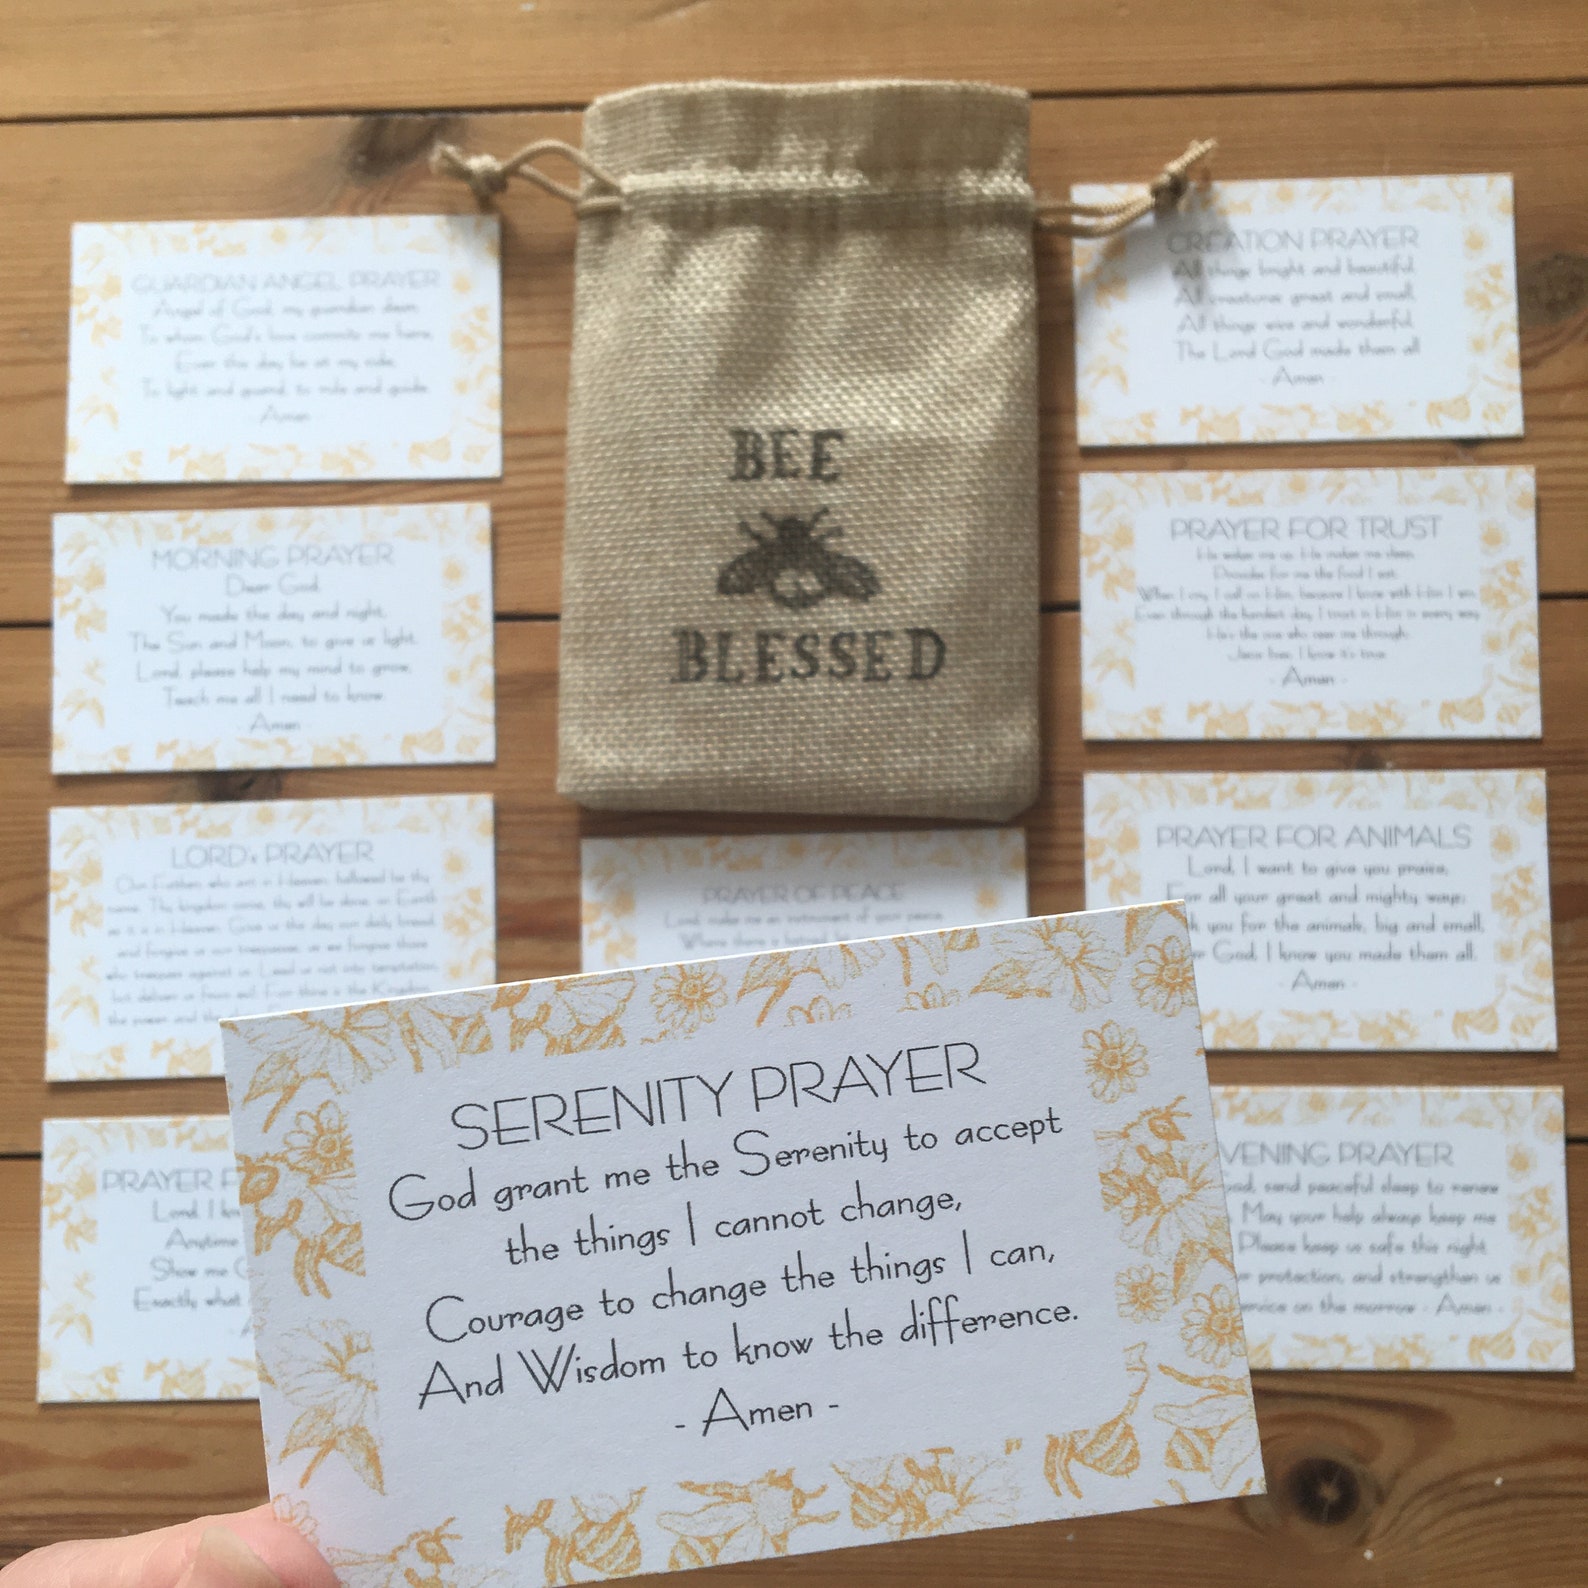 BEE
BLESSED
GUARDIAN ANGEL PRAYER
Angel of God, my guardian dear,
To whom God's love commits me here,
Ever this day be at my side,
To light and guard, to rule and guide.
- Amen -
MORNING PRAYER
Dear God,
You made the day and night,
The Sun and Moon, to give us light.
Lord, please help my mind to grow,
Teach me all I need to know.
- Amen -
LORDs PRAYER
Our Father, who art in Heaven, hallowed be thy
name. Thy kingdom come, thy will be done, on Earth
as it is in Heaven. Give us this day our daily bread,
and forgive us our trespasses, as we forgive those
who trespass against us. Lead us not into temptation,
but deliver us from evil. For thine is the Kingdom,
the power and the
PRAYER F
Lord, I
Anytime
Show me
Exactly what
CREATION PRAYER
All things bright and beautiful,
All creatures great and small,
All things wise and wonderful,
The Lord God made them all
- Amen -
PRAYER FOR TRUST
He wakes me up, He makes me sleep,
Provides for me the food I eat.
When I cry, I call on Him, because I know with Him I win.
Even through the hardest day, I trust in Him in every way.
He's the one who sees me through,
I know it's true.
- Amen -
PRAYER FOR ANIMALS
Lord, I want to give you praise,
For all your great and mighty ways;
k you for the animals, big and small,
God, I know you made them all.
- Amen -
VENING PRAYER
send peaceful sleep to renew
May your help always keep me
Please keep us safe this night
protection, and strengthen us
on the morrow - Amen -
PRAYER OF PEACE
Lord, make me an instrument of your peace,
Where there is hatred,
SERENITY PRAYER
God grant me the Serenity to accept
the things I cannot change,
Courage to change the things I can,
And Wisdom to know the difference.
- Amen -